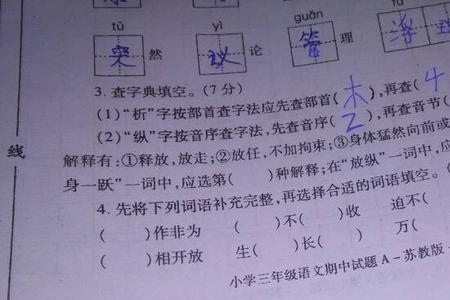 tū yì guǎn
突然 议论 管理
3. 查字典填空。(7分)
(1)“析”字按部首查字法应先查部首(木),再查(4
(2)“纵”字按音序查字法,先查音序(Z),再查音节(
解释有:①释放,放走;②放任,不加拘束;③身体猛然向前或
身一跃”一词中,应选第( )种解释;在“放纵”一词中,应
4. 先将下列词语补充完整,再选择合适的词语填空。(
( )作非为 ( )不( )收 迫不(
( )相开放 生( )长( ) 万(
小学三年级语文期中试题A-苏教版
线